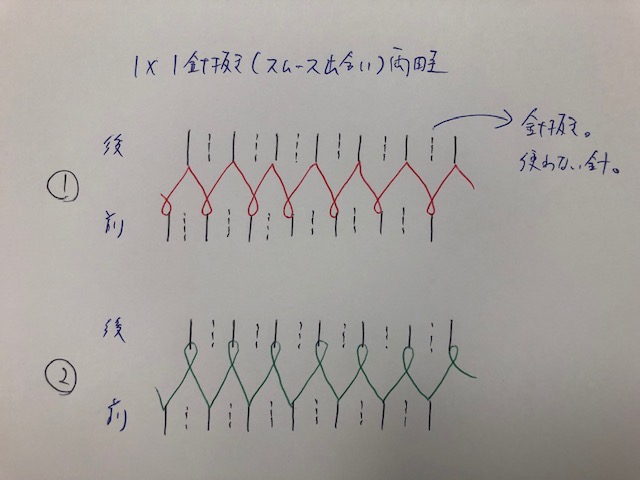 1×1針抜き(スムース出合い)両畦
針抜き。
使わない針。
後
①
前
後
②
前